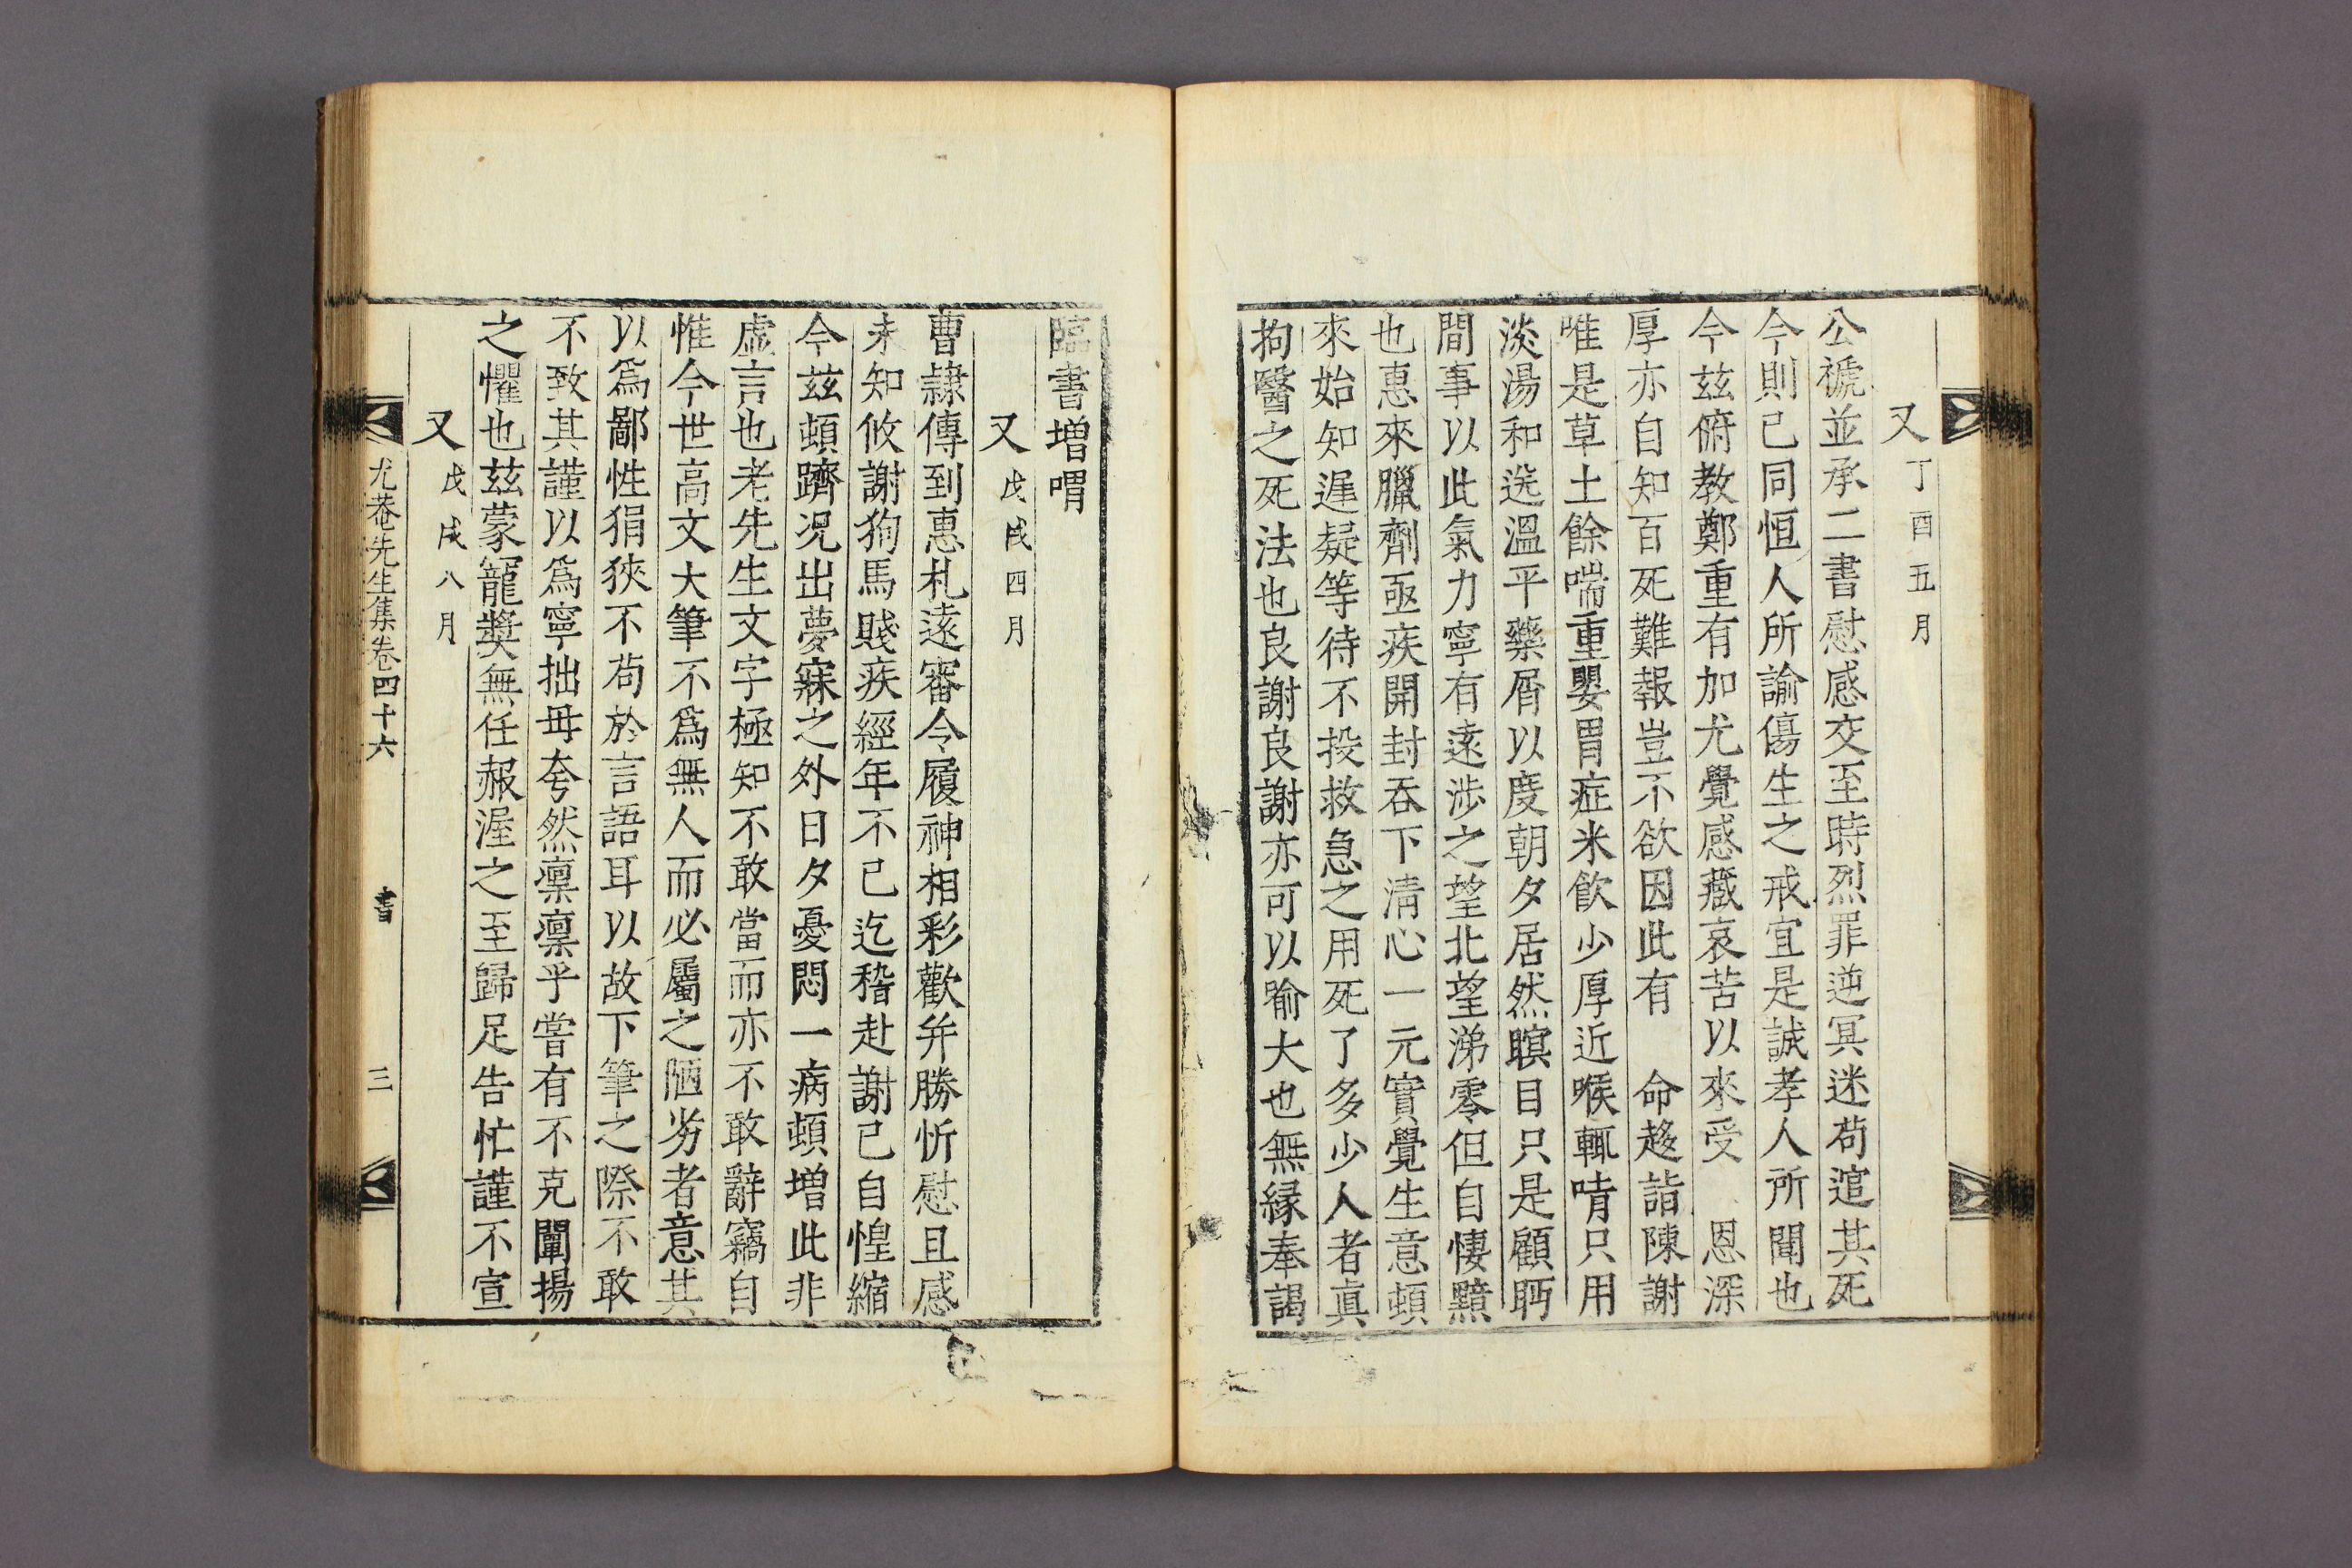 又 丁酉五月
公褫並承二書慰感交至時烈罪逆冥迷苟逭其死
今則已同恒人所諭傷生之戒宜是誠孝人所聞也
今玆俯教鄭重有加尤覺感藏哀苦以來受 恩深
厚亦自知百死難報豈不欲因此有 命趍詣陳謝
唯是草土餘喘重嬰胃症米飮少厚近喉輒㖷只用
淡湯和迭溫平藥屑以度朝夕居然瞑目只是顧眄
間事以此氣力寧有遠涉之望北望涕零但自悽黯
也惠來臘劑亟疾開封呑下淸心一元實覺生意頓
來始知遲疑等待不投救急之用死了多少人者眞
拘醫之死法也良謝良謝亦可以喩大也無縁奉謁
臨書增喟
又 戊戌四月
曹隷傳到惠札遠審今履神相彩歡并勝忻慰且感
未知攸謝狗馬賤疾經年不已迄稽赴謝已自惶縮
今玆頓躋况出夢寐之外日夕憂悶一病頓增此非
虛言也老先生文字極知不敢當而亦不敢辭竊自
惟今世高文大筆不爲無人而必屬之陋劣者意其
以爲鄙性狷狹不苟於言語耳以故下筆之際不敢
不致其謹以爲寧拙毋夸然凛凛乎嘗有不克闡揚
之懼也玆蒙寵奬無任赧渥之至歸足告忙謹不宣
又 戊戌八月
尤菴先生集卷四十六 書 三